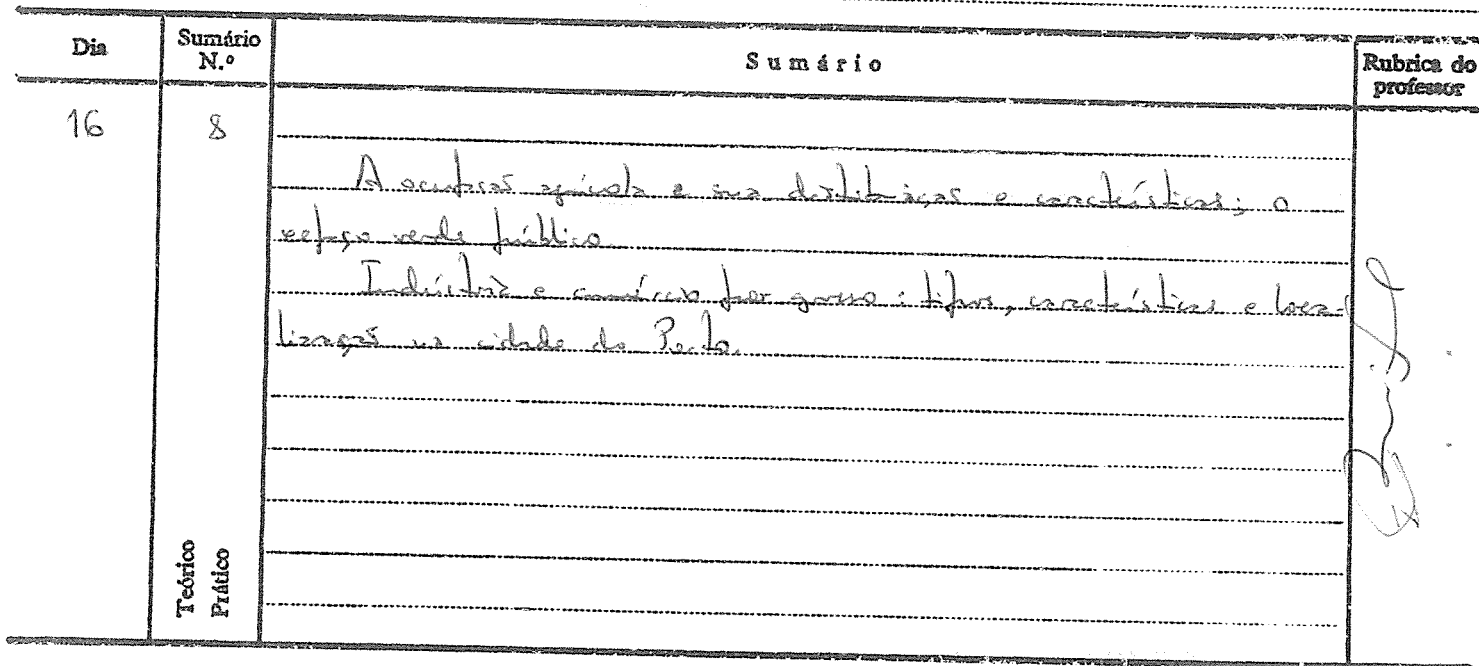 Dia
Sumário
N.º
Sumário
Rubrica do
professor
16
8
A ocupação agrícola e sua distribuição e características; o
espaço verde público.
Indústria e comércio por grosso: tipos, características e loca-
lização na cidade do Porto.
Teórico
Prático